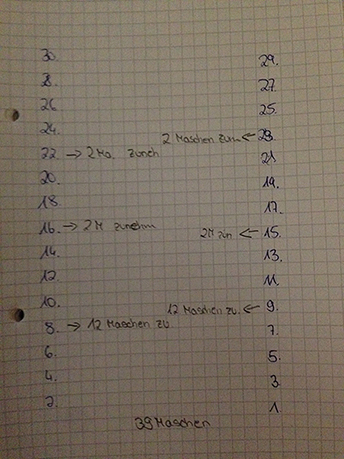 30. 29.
28. 27.
26. 25.
24. 2 Maschen zun. ← 23.
22 → 2 Ma. zuneh 21.
20. 19.
18. 17.
16. → 2 M zunehm 2M zun ← 15.
14. 13.
12. 11.
10. 12 Maschen zu. ← 9.
8. → 12 Maschen zu. 7.
6. 5.
4. 3.
2. 1.
39 Maschen